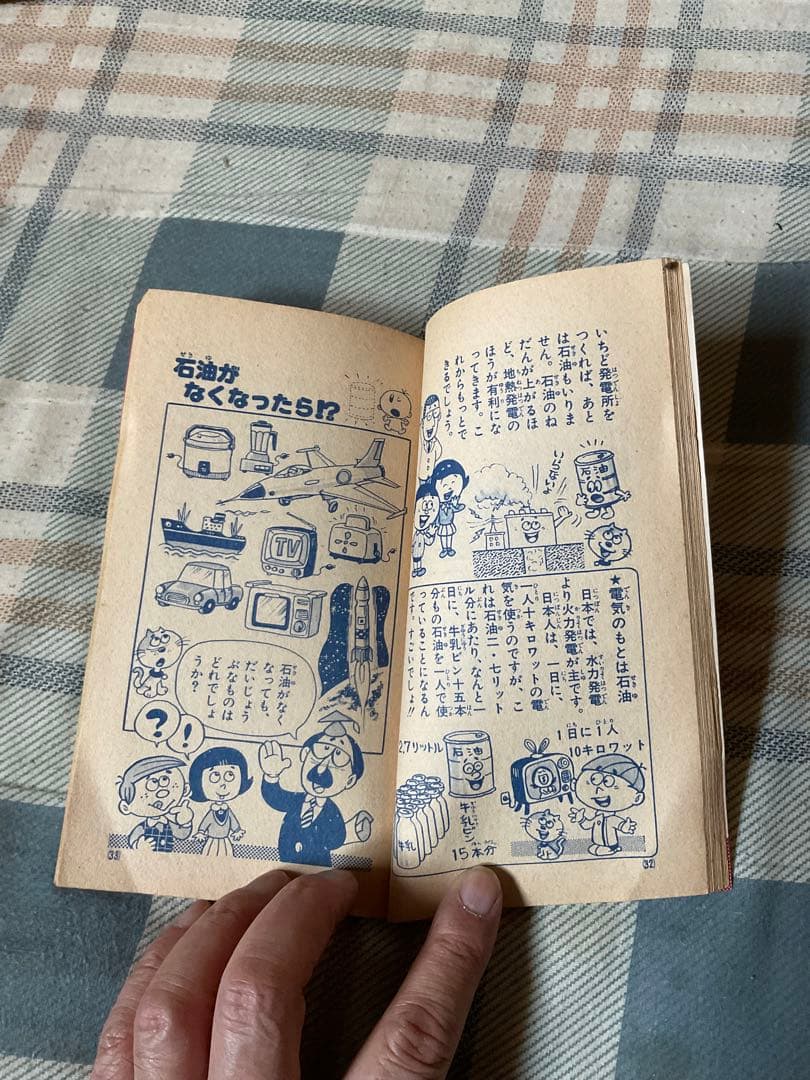 いちど発電所を
つくれば、あと
は石油もいりま
せん。石油のね
だんが上がるほ
ど、地熱発電の
ほうが有利にな
ってきます。こ
れからもっとで
きるでしょう。
石油
いらないよ
★電気のもとは石油
日本では、水力発電
より火力発電が主です。
日本人は、一日に、
一人十キロワットの電
気を使うのですが、こ
れは石油二・七リット
ル分にあたり、なんと
日に、牛乳ビン十五本
分もの石油を一人で使
っていることになるん
です。すごいでしょ!!
1日に1人
10キロワット
2.7リットル
石油
牛乳ビン
15本分
牛乳
32
石油が
なくなったら!?
TV
石油がなく
なっても、
だいじょう
ぶなものは
どれでしょ
うか?
?
!
33